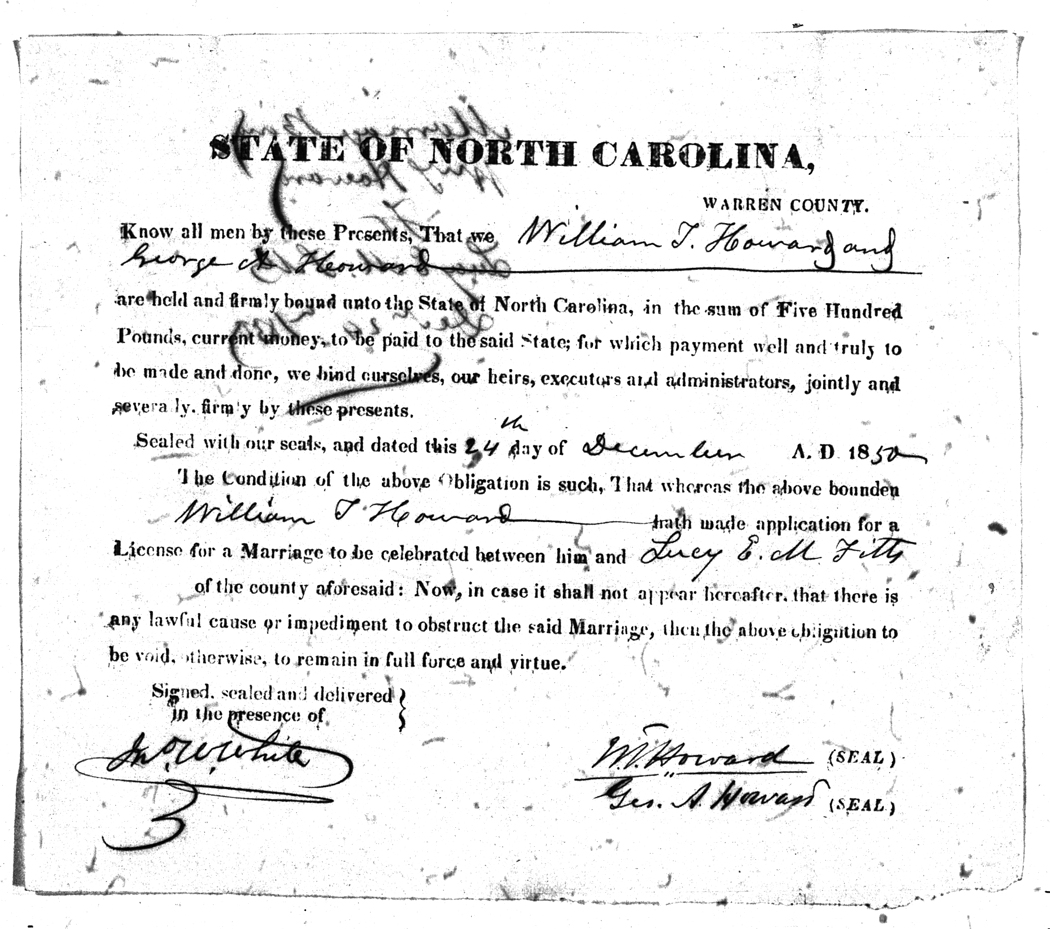 STATE OF NORTH CAROLINA,
WARREN COUNTY.
Know all men by these Presents, That we William T. Howard and
George A Howard
are held and firmly bound unto the State of North Carolina, in the sum of Five Hundred
Pounds, current money, to be paid to the said State; for which payment well and truly to
be made and done, we bind ourselves, our heirs, executors and administrators, jointly and
severally, firmly by these presents.
Sealed with our seals, and dated this 24th day of December A. D. 1850
The Condition of the above Obligation is such, That whereas the above bounden
William T Howard hath made application for a
License for a Marriage to be celebrated between him and Lucy E. M Fitts
of the county aforesaid: Now, in case it shall not appear hereafter, that there is
any lawful cause or impediment to obstruct the said Marriage, then the above obligation to
be void, otherwise, to remain in full force and virtue.
Signed, sealed and delivered
in the presence of
Jno. W. White
W. T. Howard (SEAL)
Geo. A. Howard (SEAL)